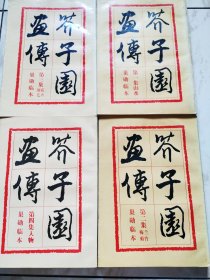 芥子園
畫傳
第三集
巢勋临本
芥子園
畫傳
第一集山水
巢勋临本
芥子園
畫傳
第四集人物
巢勋临本
芥子園
畫傳
第二集兰竹梅菊
巢勋临本